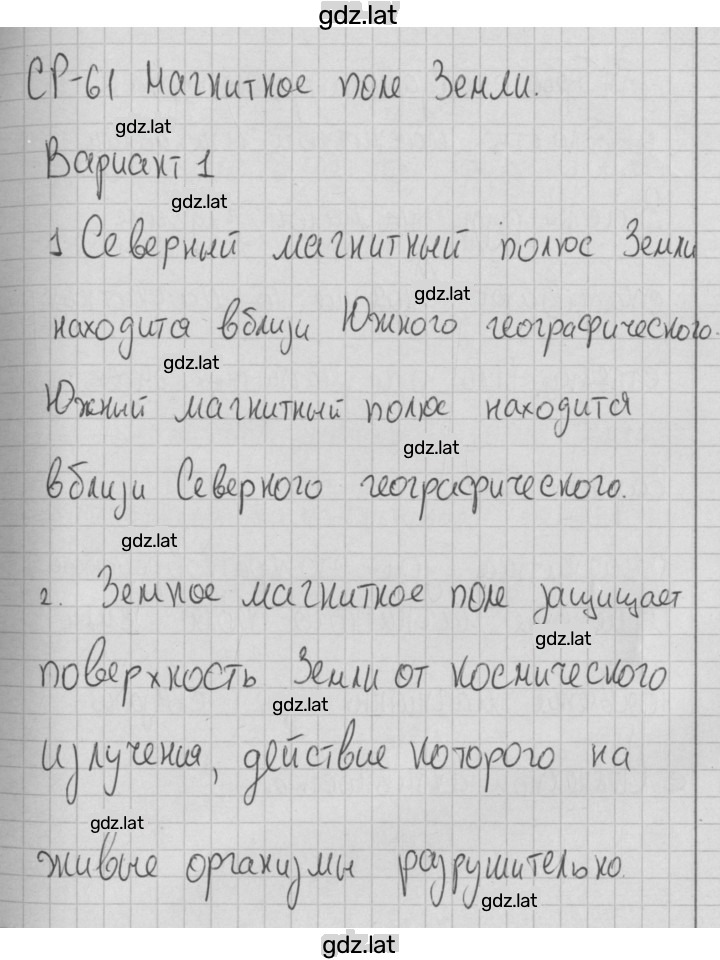 gdz.lat
СР-61 Магнитное поле Земли.
gdz.lat
Вариант 1
gdz.lat
1 Северный магнитный полюс Земли
gdz.lat
находится вблизи Южного географического.
gdz.lat
Южний магнитный полюс находится
gdz.lat
вблизи Северного географического.
gdz.lat
2. Земное магнитное поле защищает
gdz.lat
поверхность Земли от космического
gdz.lat
излучения, действие которого на
gdz.lat
живые организмы разрушительно.
gdz.lat
gdz.lat